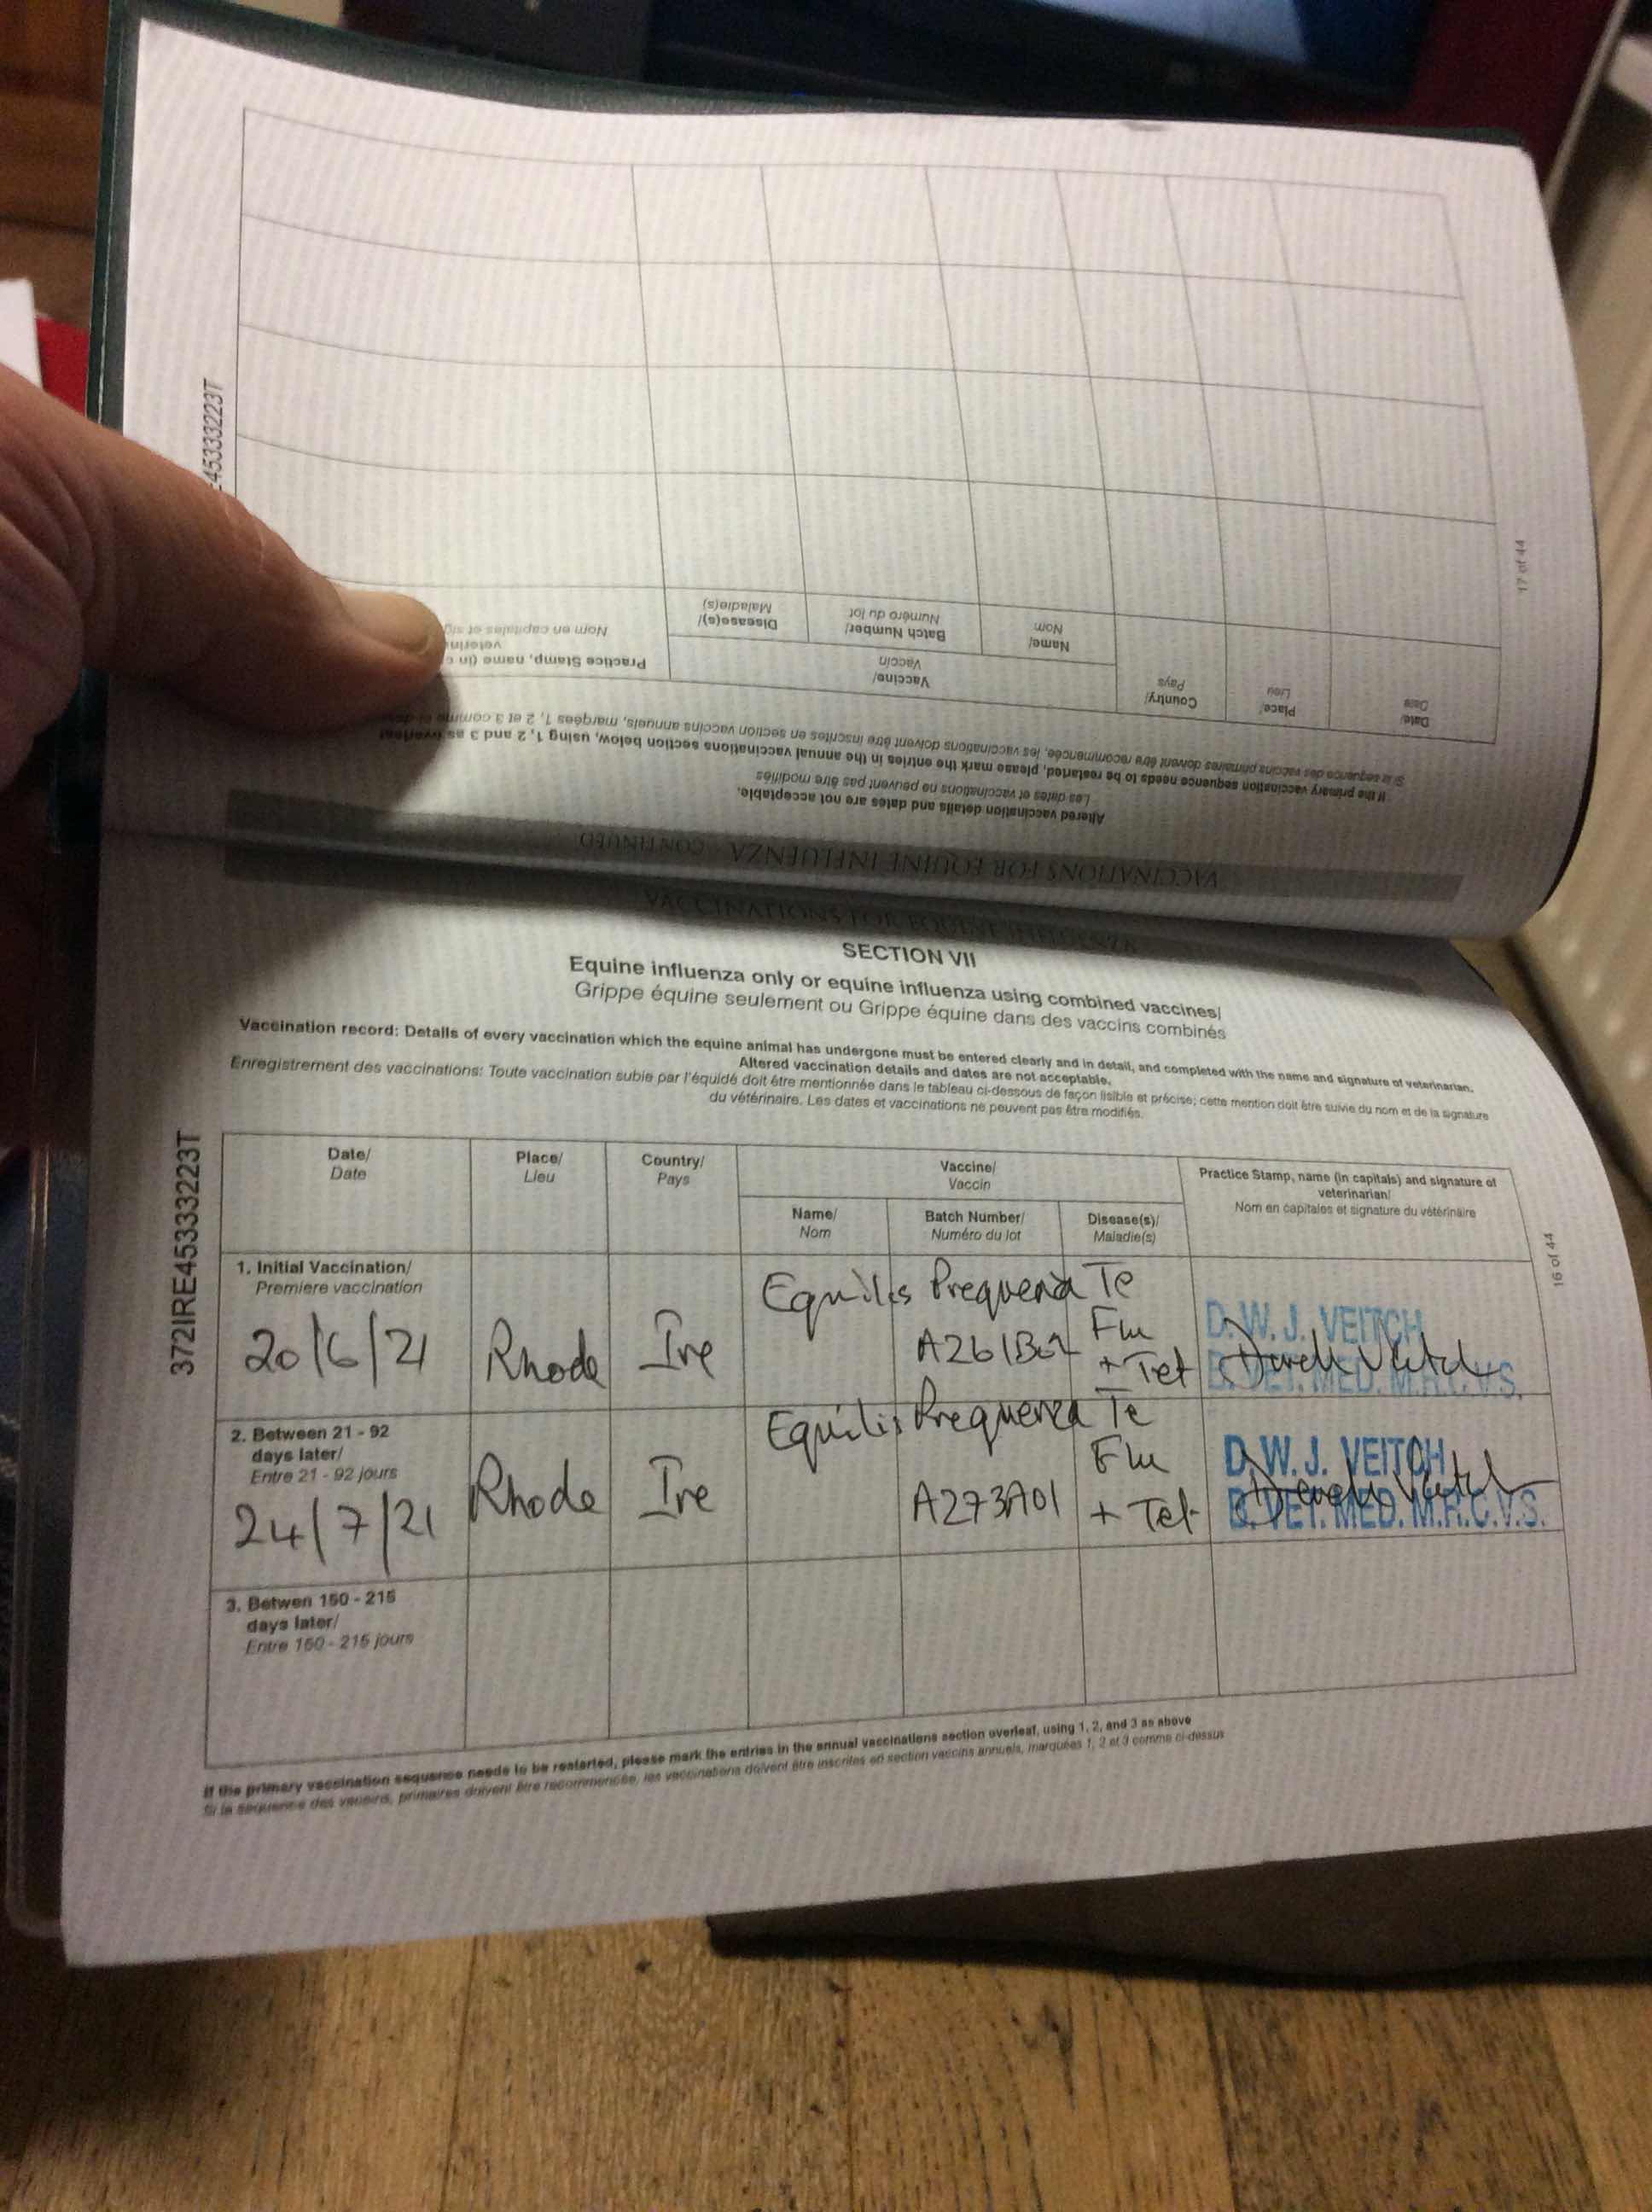 SECTION VII
Equine influenza only or equine influenza using combined vaccines/
Grippe équine seulement ou Grippe équine dans des vaccins combinés
Vaccination record: Details of every vaccination which the equine animal has undergone must be entered clearly and in detail, and completed with the name and signature of veterinarian.
Altered vaccination details and dates are not acceptable.
Enregistrement des vaccinations: Toute vaccination subie par l'équidé doit être mentionnée dans le tableau ci-dessous de façon lisible et précise; cette mention doit être suivie du nom et de la signature
du vétérinaire. Les dates et vaccinations ne peuvent pas être modifiés.
372IRE45333223T
16 of 44
Date/
Date
Place/
Lieu
Country/
Pays
Vaccine/
Vaccin
Name/
Nom
Batch Number/
Numéro du lot
Disease(s)/
Maladie(s)
Practice Stamp, name (in capitals) and signature of
veterinarian/
Nom en capitales et signature du vétérinaire
1. Initial Vaccination/
Premiere vaccination
20/6/21
Rhode
Ire
Equilis Prequenza Te
A261B02
Flu
+ Tet
D. W. J. VEITCH
B. VET. MED. M.R.C.V.S.
2. Between 21 - 92
days later/
Entre 21 - 92 jours
24/7/21
Rhode
Ire
Equilis Prequenza Te
A273A01
Flu
+ Tet
D. W. J. VEITCH
B. VET. MED. M.R.C.V.S.
3. Betwen 150 - 215
days later/
Entre 150 - 215 jours
If the primary vaccination sequence needs to be restarted, please mark the entries in the annual vaccinations section overleaf, using 1, 2, and 3 as above
Si la sequence des vaccins, primaires doivent être recommencée, les vaccinations doivent être inscrites en section vaccins annuels, marquées 1, 2 et 3 comme ci-dessus
VACCINATIONS FOR EQUINE INFLUENZA
VACCINATIONS FOR EQUINE INFLUENZA - CONTINUED
Altered vaccination details and dates are not acceptable.
Les dates et vaccinations ne peuvent pas être modifiés
If the primary vaccination sequence needs to be restarted, please mark the entries in the annual vaccinations section below, using 1, 2 and 3 as overleaf
Si la sequence des vaccins primaires doivent être recommencée, les vaccinations doivent être inscrites en section vaccins annuels, marqées 1, 2 et 3 comme
Date/
Date
Place/
Lieu
Country/
Pays
Vaccine/
Vaccin
Name/
Nom
Batch Number/
Numéro du lot
Disease(s)/
Maladie(s)
Practice Stamp, name (in
Nom en capitales et
45333223T
17 of 44